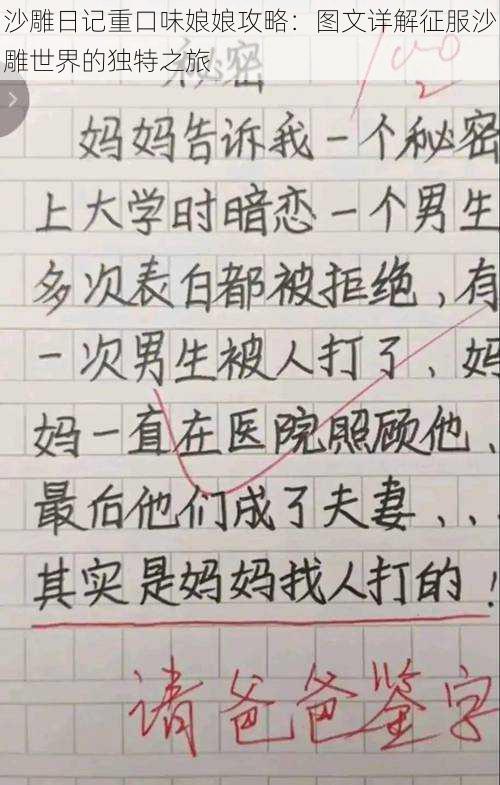 沙雕日记重口味娘娘攻略：图文详解征服沙
雕世界的独特之旅
秘密
100
2
妈妈告诉我一个秘密
上大学时暗恋一个男生
多次表白都被拒绝，有
一次男生被人打了、妈
妈一直在医院照顾他、
最后他们成了夫妻、、
其实是妈妈找人打的！
请爸爸鉴字